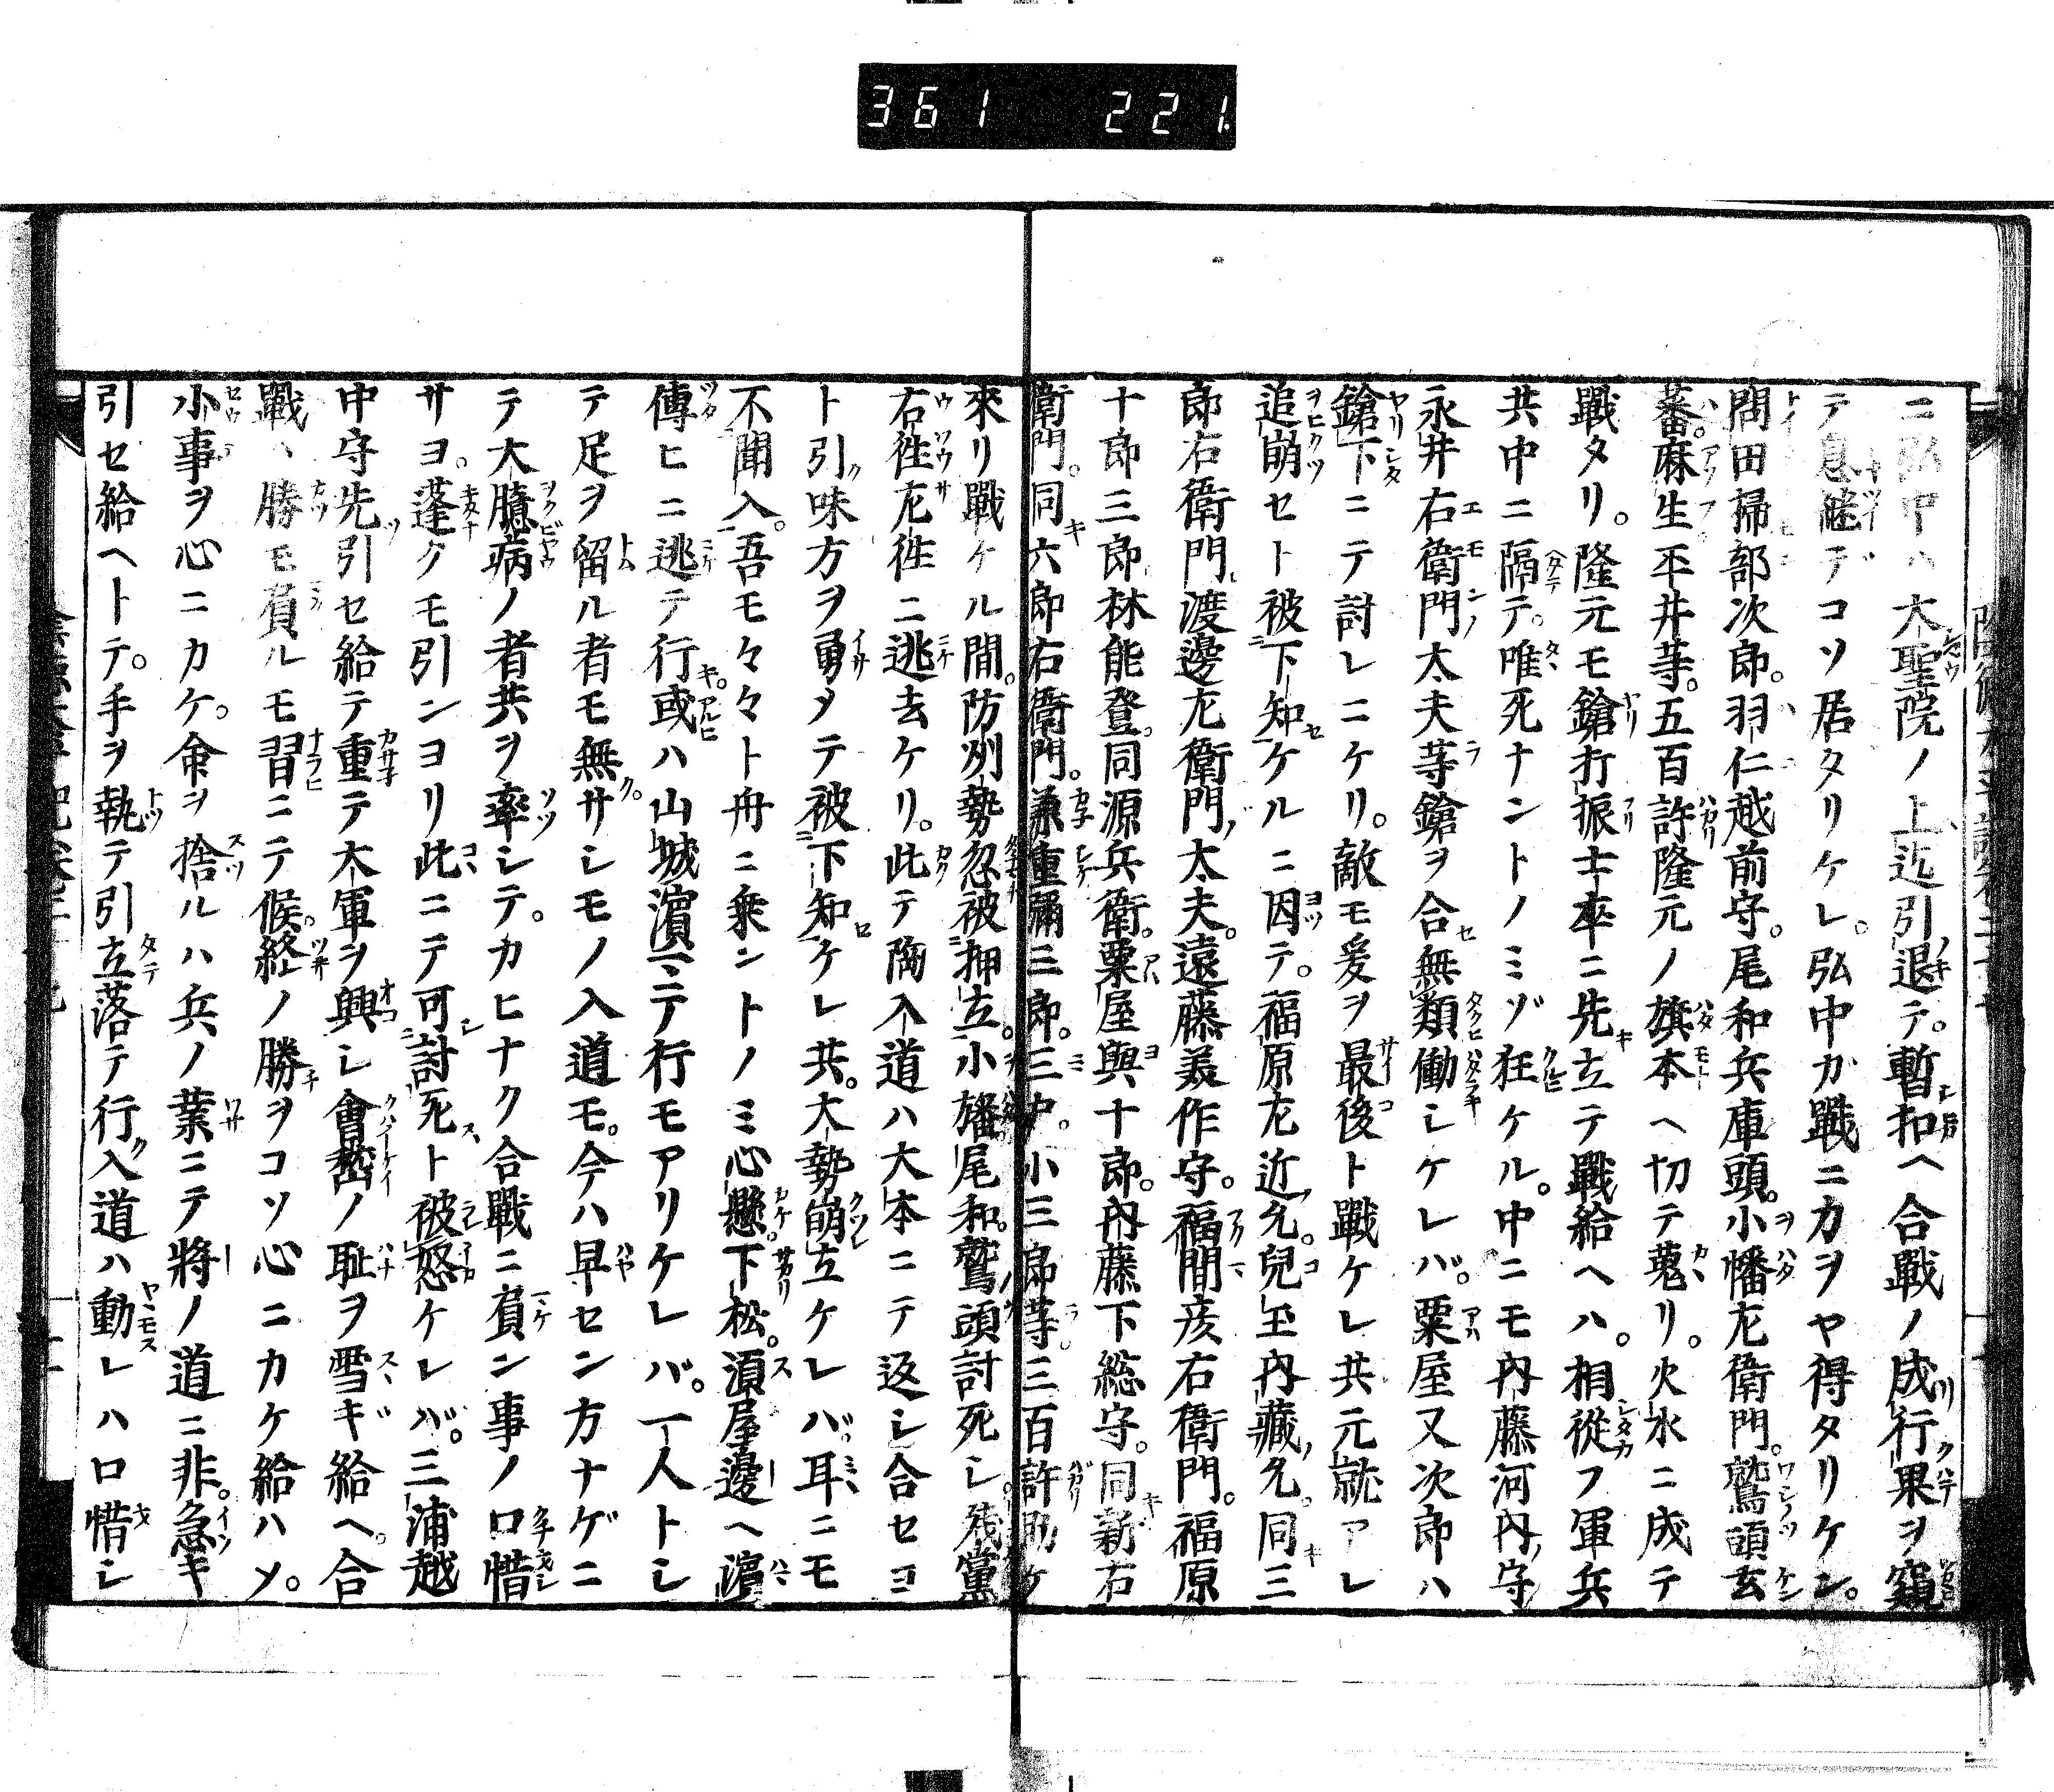 361 221
ニ弘中ハ大聖院ノ上迄引退テ。暫扣ヘ合戰ノ成行果ヲ窺
テ息繼デコソ居タリケレ。弘中ガ戰ニ力ヲヤ得タリケン。
問田掃部次郎。羽仁越前守。尾和兵庫頭。小幡左衛門。鷲頭玄
蕃。麻生平井等。五百許隆元ノ旗本ヘ切テ蒐リ。火水ニ成テ
戰タリ。隆元モ鎗打振士卒ニ先立テ戰給ヘハ。相從フ軍兵
共中ニ隔テ。唯死ナントノミゾ狂ケル。中ニモ内藤河内守
永井右衛門太夫等鎗ヲ合無類働シケレバ。粟屋又次郎ハ
鎗下ニテ討レニケリ。敵モ爰ヲ最後ト戰ケレ共元就アレ
追崩セト被下知ケルニ因テ。福原左近允。兒玉内藏允。同三
郎右衛門渡邊左衛門太夫。遠藤美作守。福間彦右衛門。福原
十郎三郎林能登。同源兵衛。粟屋與十郎。内藤下総守。同新右
衛門。同六郎右衛門。兼重彌三郎。三戸小三郎等三百許助ケ
來リ戰ケル間。防州勢忽被押立。小旛尾和。鷲頭討死シ。残黨
右徃左徃ニ逃去ケリ。此テ陶入道ハ大本ニテ返シ合セヨ
ト引味方ヲ勇タテ被下知ケレ共。大勢崩立ケレバ。耳ニモ
不聞入。吾モ々々ト舟ニ乘ントノミ心懸。下松。須屋邊ヘ濵
傳ヒニ逃テ行或ハ山城濵ニテ行モアリケレバ。一人トシ
テ足ヲ留ル者モ無サレモノ入道モ。今ハ早セン方ナゲニ
テ大臆病ノ者共ヲ率シテ。カヒナク合戰ニ負ン事ノ口惜
サヨ。蓬クモ引ンヨリ此ニテ可討死ト被怒ケレバ。三浦越
中守先引セ給テ重テ大軍ヲ興シ會嵆ノ耻ヲ雪ギ給ヘ。合
戰ハ勝モ負ルモ習ニテ候。終ノ勝ヲコソ心ニカケ給ハメ。
小事ヲ心ニカケ。命ヲ捨ルハ兵ノ業ニテ將ノ道ニ非。急キ
引セ給ヘトテ。手ヲ執テ引立落テ行入道ハ動レハ口惜シ